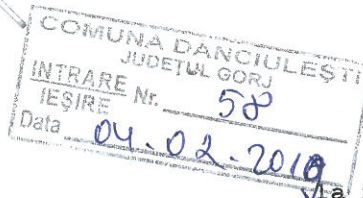 COMUNA DANCIULEȘTI
JUDEȚUL GORJ
INTRARE Nr. 58
IEȘIRE
Data 04-02-2019